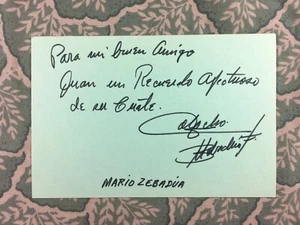 Para mi buen Amigo
Juan un Recuerdo Afectuoso
de su Cuate.
MARIO ZEBADÚA